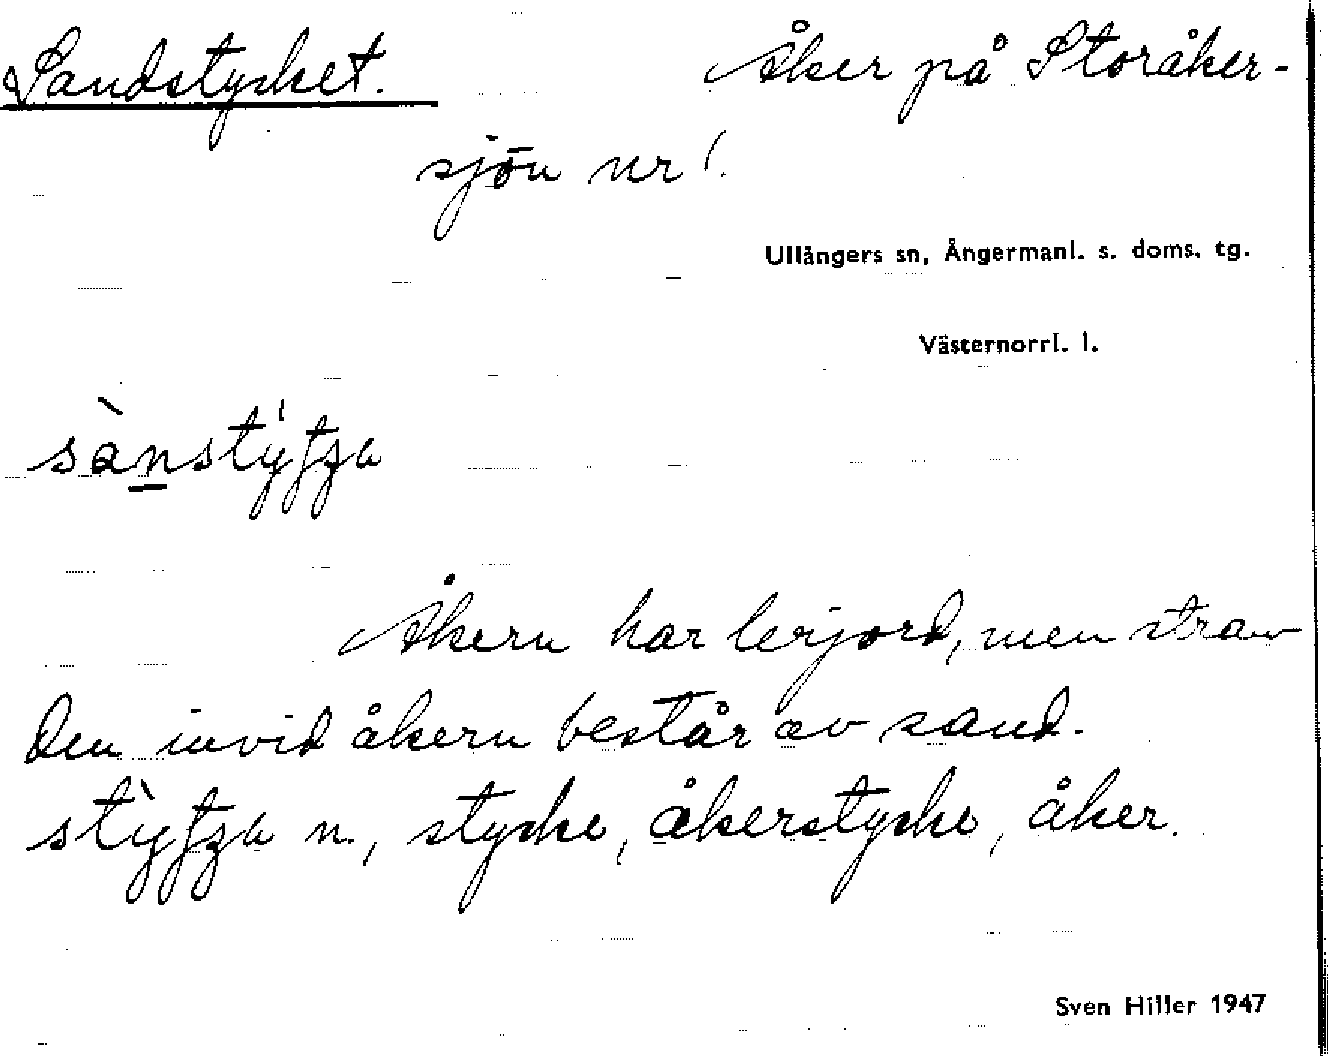 Sandstycket. Åker på Storåker-
sjön nr 1.
Ullångers sn, Ångermanl. s. doms. tg.
Västernorrl. l.
Åkern har lerjord, men stran
den invid åkern består av sand.
n., stycke, åkerstycke, åker.
Sven Hiller 1947